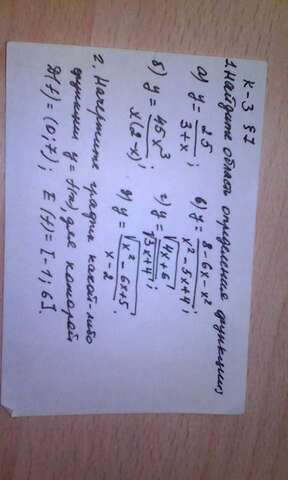 К-3 §1
1. Найдите область определения функции:
а) y = 25/(3+x);
в) y = (8-6x-x²)/(x²-5x+4);
б) y = 45x³/(x(2-x));
г) y = √(4x+6)/√(3x+4);
д) y = √(x²-6x+5)/(x-2)
2. Начертите график какой-либо
функции y = f(x), для которой
D(f) = (0; 7); E(f) = [-1; 6].